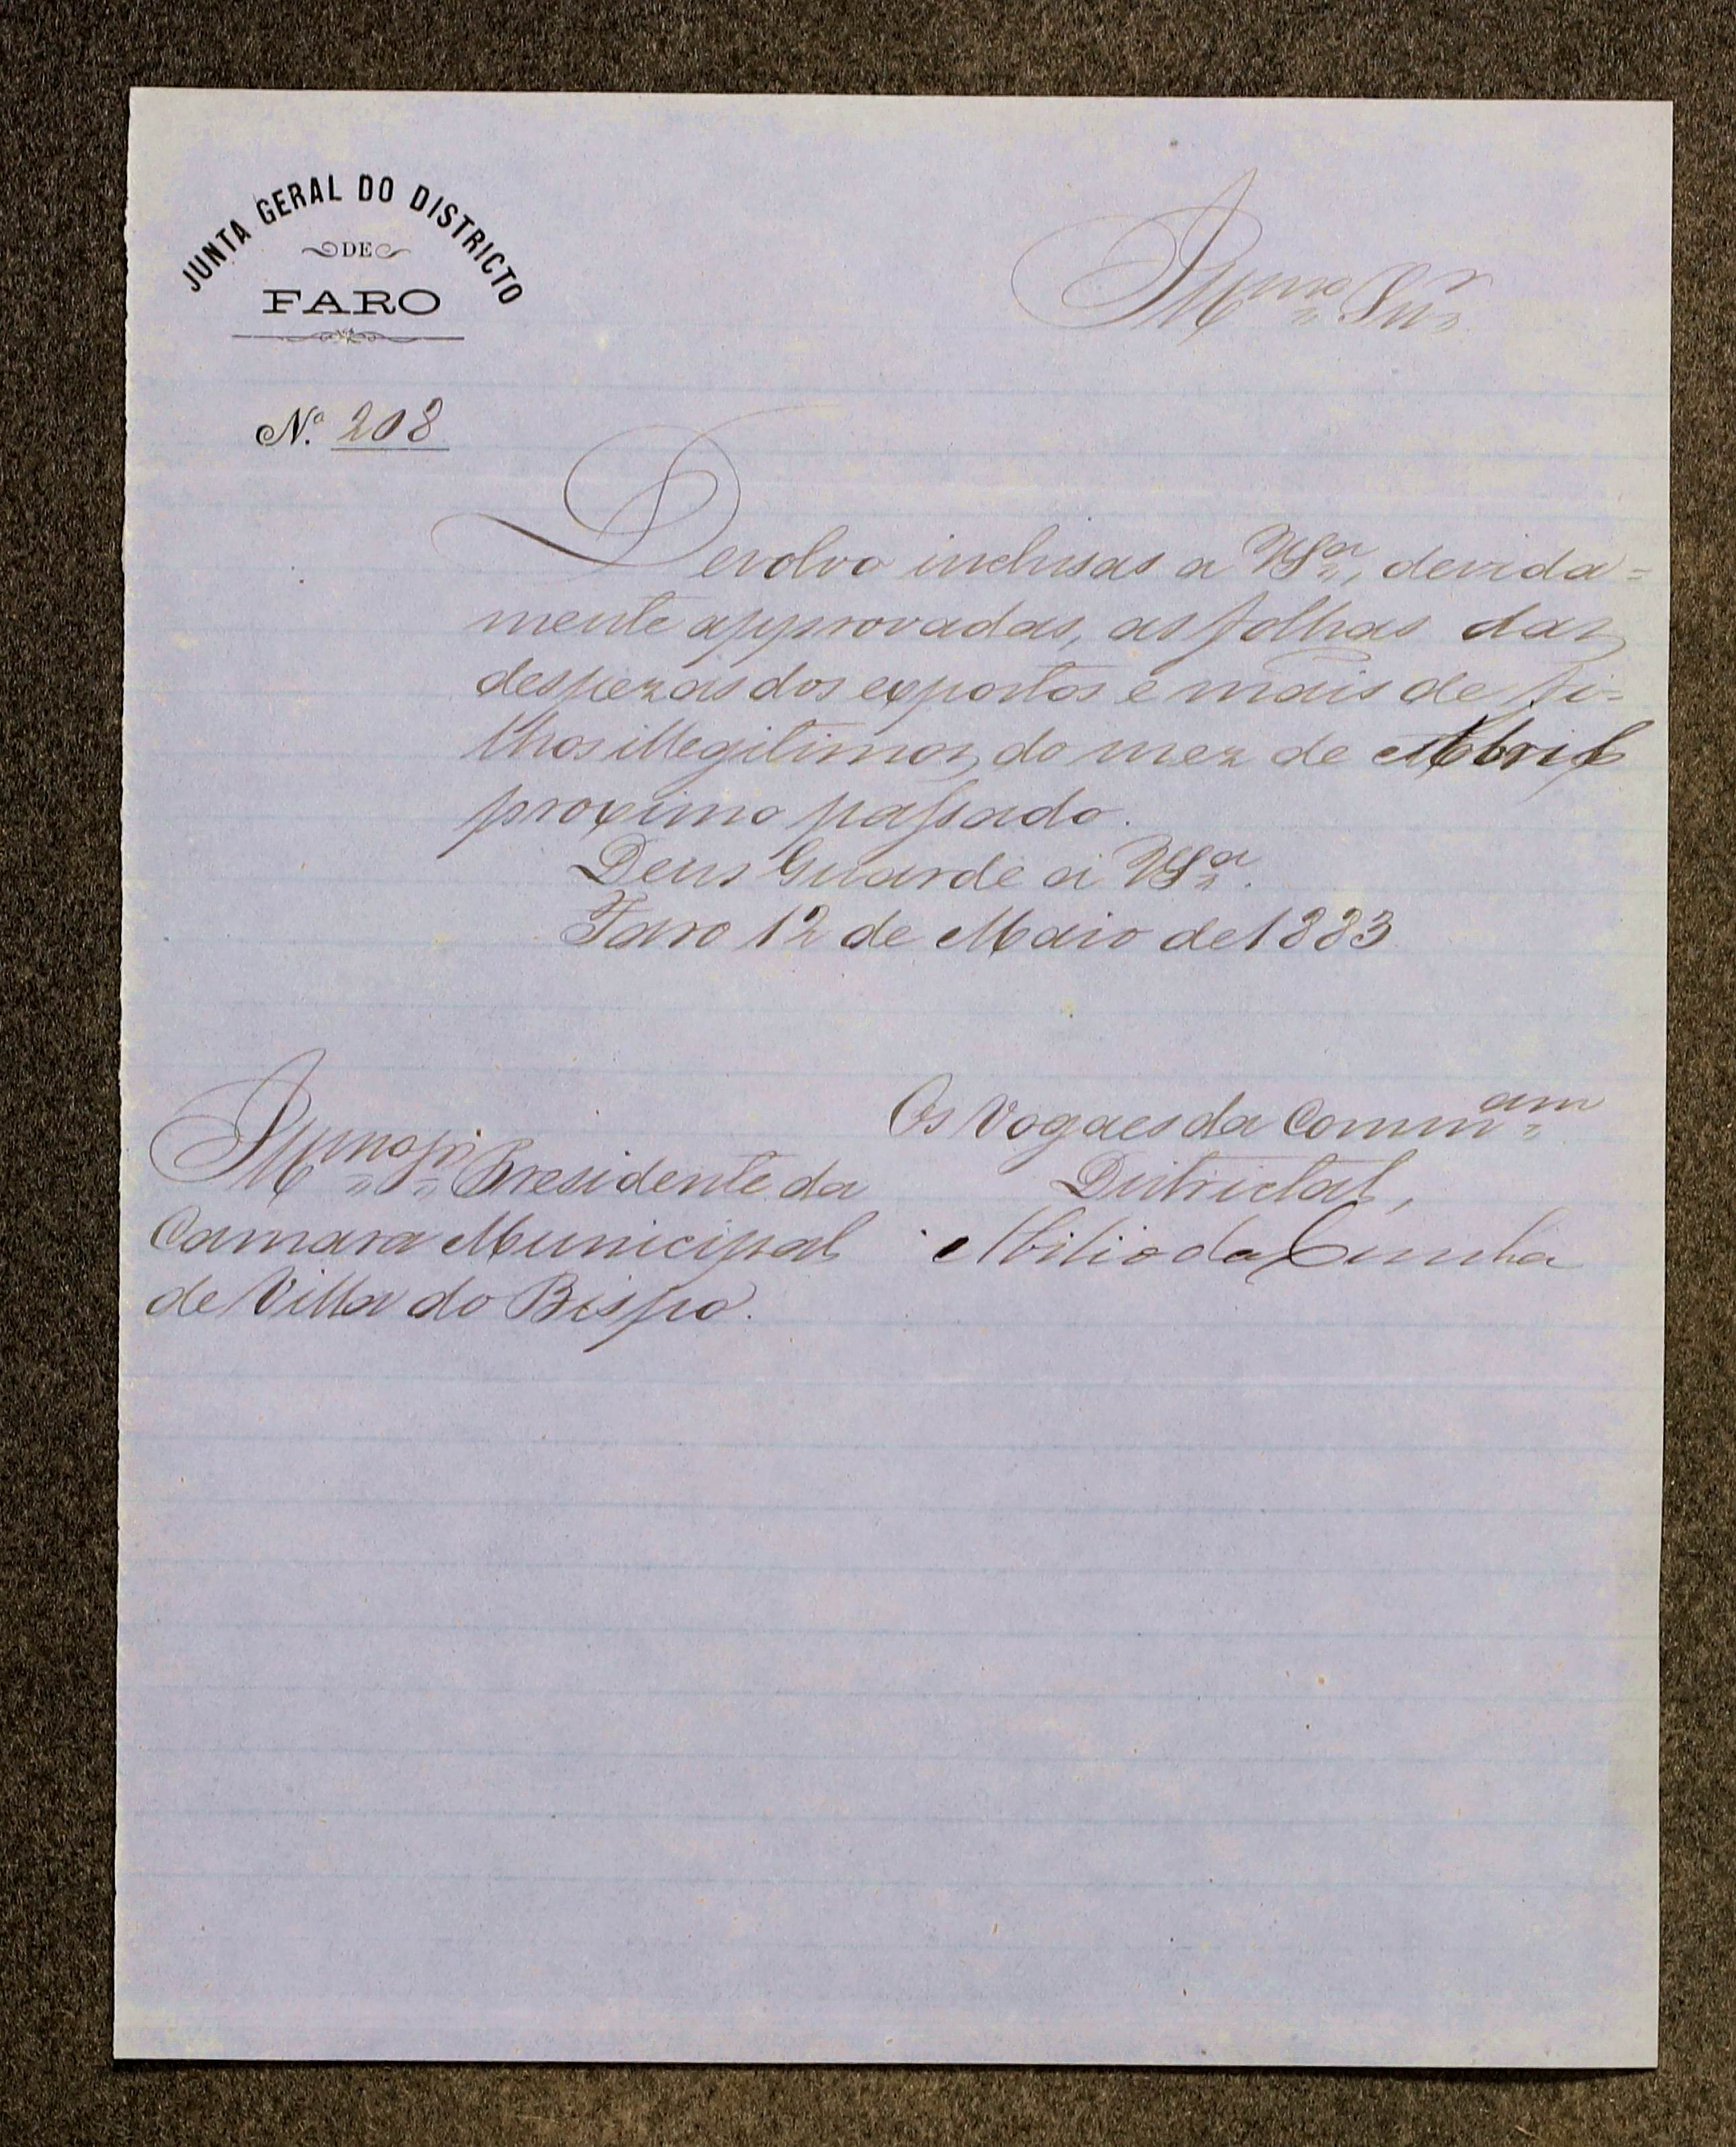 JUNTA GERAL DO DISTRICTO
DE
FARO
Illmo Snr
N.º 208
Devolvo inclusas a VSª, devida=
mente approvadas, as folhas das
despezas dos expostos e mais de fi-
lhos illegitimos, do mez de Abril
proximo passado.
Deus Guarde a VSª.
Faro 12 de Maio de 1883
Os Vogaes da Commam
Districtal,
Abilio da Cunha
Illmo Sr Presidente da
Camara Municipal
de Villa do Bispo.